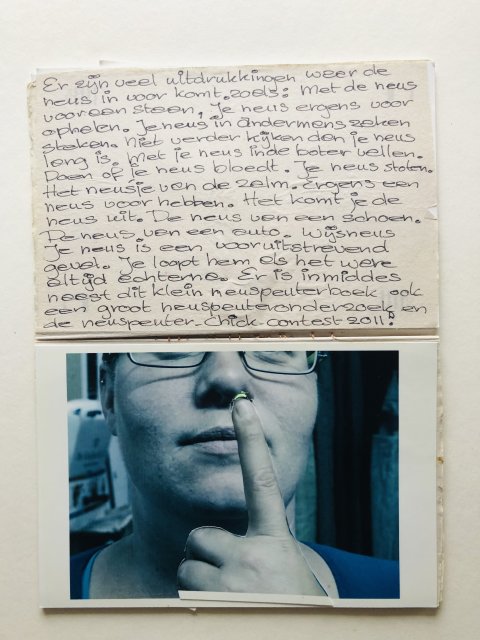 Er zijn veel uitdrukkingen waar de
neus in voor komt.zoals: Met de neus
voor een staan, Je neus ergens voor
ophalen. Je neus in andermans zaken
steken. Niet verder kijken dan je neus
lang is. Met je neus in de boter vallen.
Doen of je neus bloedt. Je neus stoten.
Het neusje van de zalm. Ergens een
neus voor hebben. Het komt je de
neus uit. De neus van een schoen.
De neus van een auto. Wijsneus
Je neus is een vooruitstrevend
geval. Je loopt hem als het ware
altijd achterna. Er is inmiddes
naast dit klein neuspeuterboek ook
een groot neuspeuteronderzoek en
de neuspeuter-chick-contest 2011!